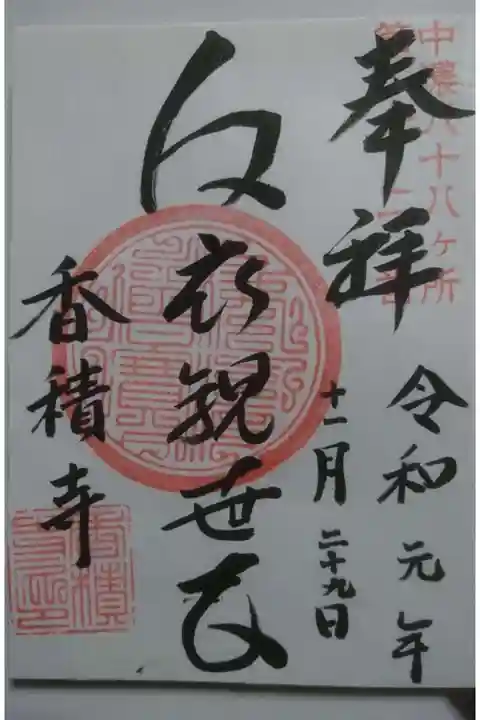 中濃八十八ヶ所
奉拝
令和元年
十一月二十九日
白衣観世音
香積寺